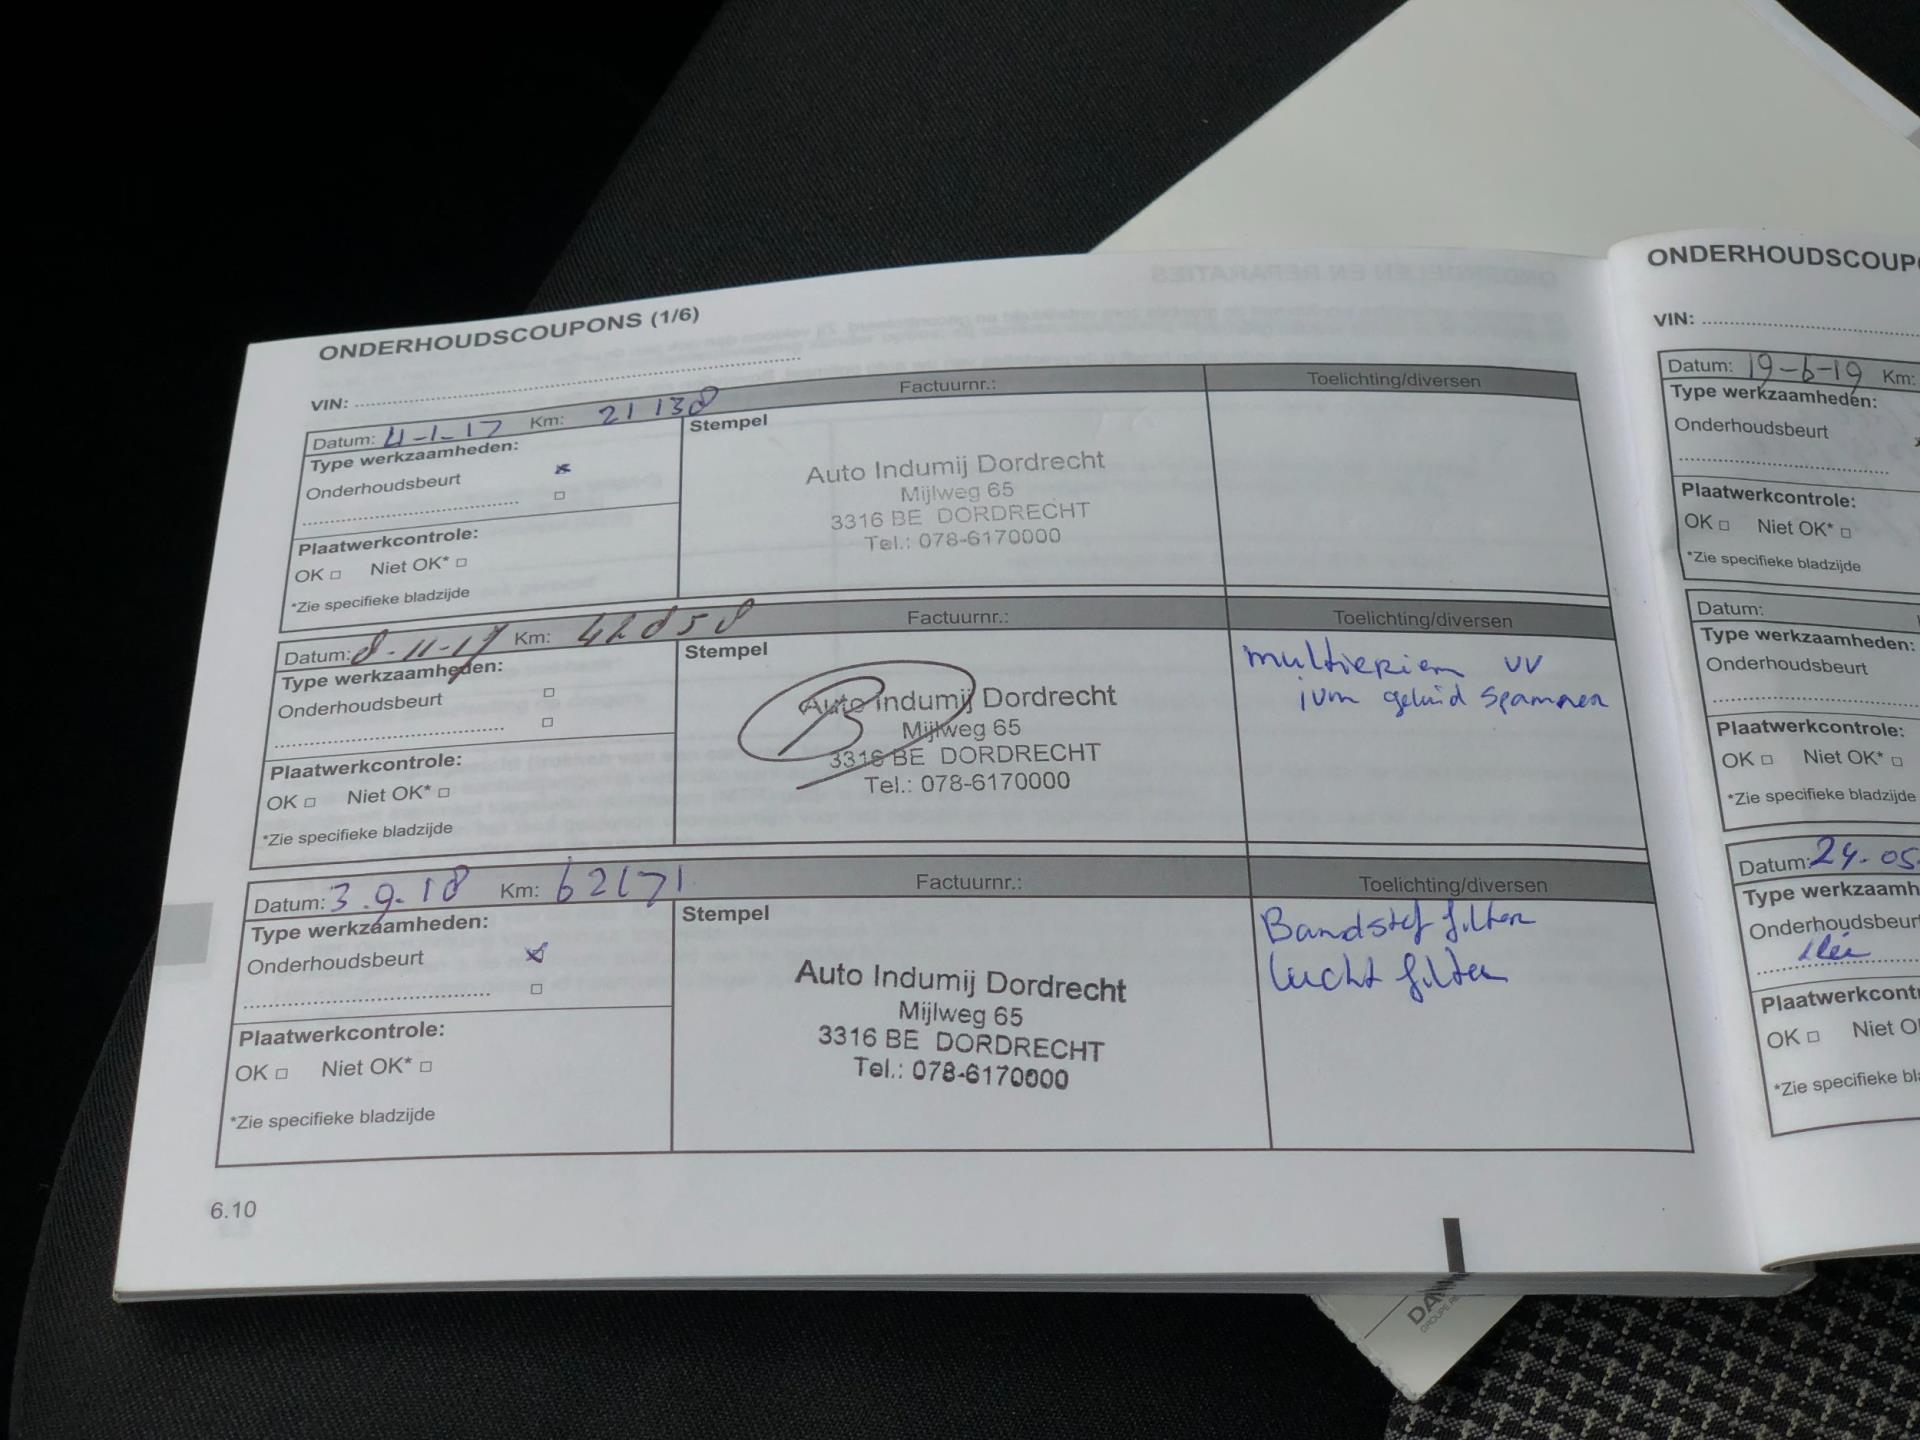 ONDERHOUDSCOUPONS (1/6)
VIN:
Datum: 4-1-17 Km: 21138 Factuurnr.: Toelichting/diversen
Type werkzaamheden:
Onderhoudsbeurt
Plaatwerkcontrole:
OK Niet OK*
*Zie specifieke bladzijde
Stempel
Auto Indumij Dordrecht
Mijlweg 65
3316 BE DORDRECHT
Tel.: 078-6170000
Datum: 8-11-17 Km: 42858 Factuurnr.: Toelichting/diversen
Type werkzaamheden:
Onderhoudsbeurt
Plaatwerkcontrole:
OK Niet OK*
*Zie specifieke bladzijde
Stempel
Auto Indumij Dordrecht
Mijlweg 65
3316 BE DORDRECHT
Tel.: 078-6170000
multieriem vv
ivm geluid spannen
Datum: 3.9.18 Km: 62171 Factuurnr.: Toelichting/diversen
Type werkzaamheden:
Onderhoudsbeurt
Plaatwerkcontrole:
OK Niet OK*
*Zie specifieke bladzijde
Stempel
Auto Indumij Dordrecht
Mijlweg 65
3316 BE DORDRECHT
Tel.: 078-6170000
Brandstof filter
lucht filter
6.10
ONDERHOUDSCOUP
VIN:
Datum: 19-6-19 Km:
Type werkzaamheden:
Onderhoudsbeurt
Plaatwerkcontrole:
OK Niet OK*
*Zie specifieke bladzijde
Datum:
Type werkzaamheden:
Onderhoudsbeurt
Plaatwerkcontrole:
OK Niet OK*
*Zie specifieke bladzijde
Datum: 24-05
Type werkzaamh
Onderhoudsbeurt
Plaatwerkcont
OK Niet O
*Zie specifieke bl
DA
GROUPE RE